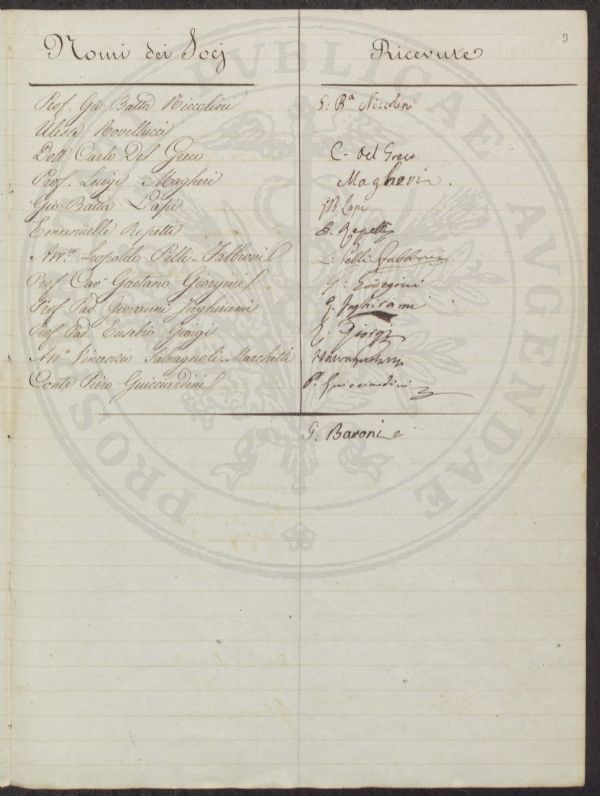 9
Nomi dei Socj Ricevute
Prof. Gio Batta Niccolini G: Bª Niccolini
Ulisse Novellucci
Dott. Carlo Del Greco C. Del Greco
Prof. Luigi Magheri Magheri
Gio Batta Lapi GB Lapi
Emanuelle Repetti E. Repetti
Avv.to Leopoldo Pelli-Fabbroni L: Pelli Fabbroni
Prof Cavr Gaetano Giorgini G: Giorgini
Prof Pad Giovanni Inghirami G Inghirami
Prof Pad Eusebio Giorgi E. Giorgi
Avo Vincenzio Salvagnoli-Marchetti
Conte Piero Guicciardini P. Guicciardini
G: Baroni
PROSPERITATI PUBLICAE AUGENDAE